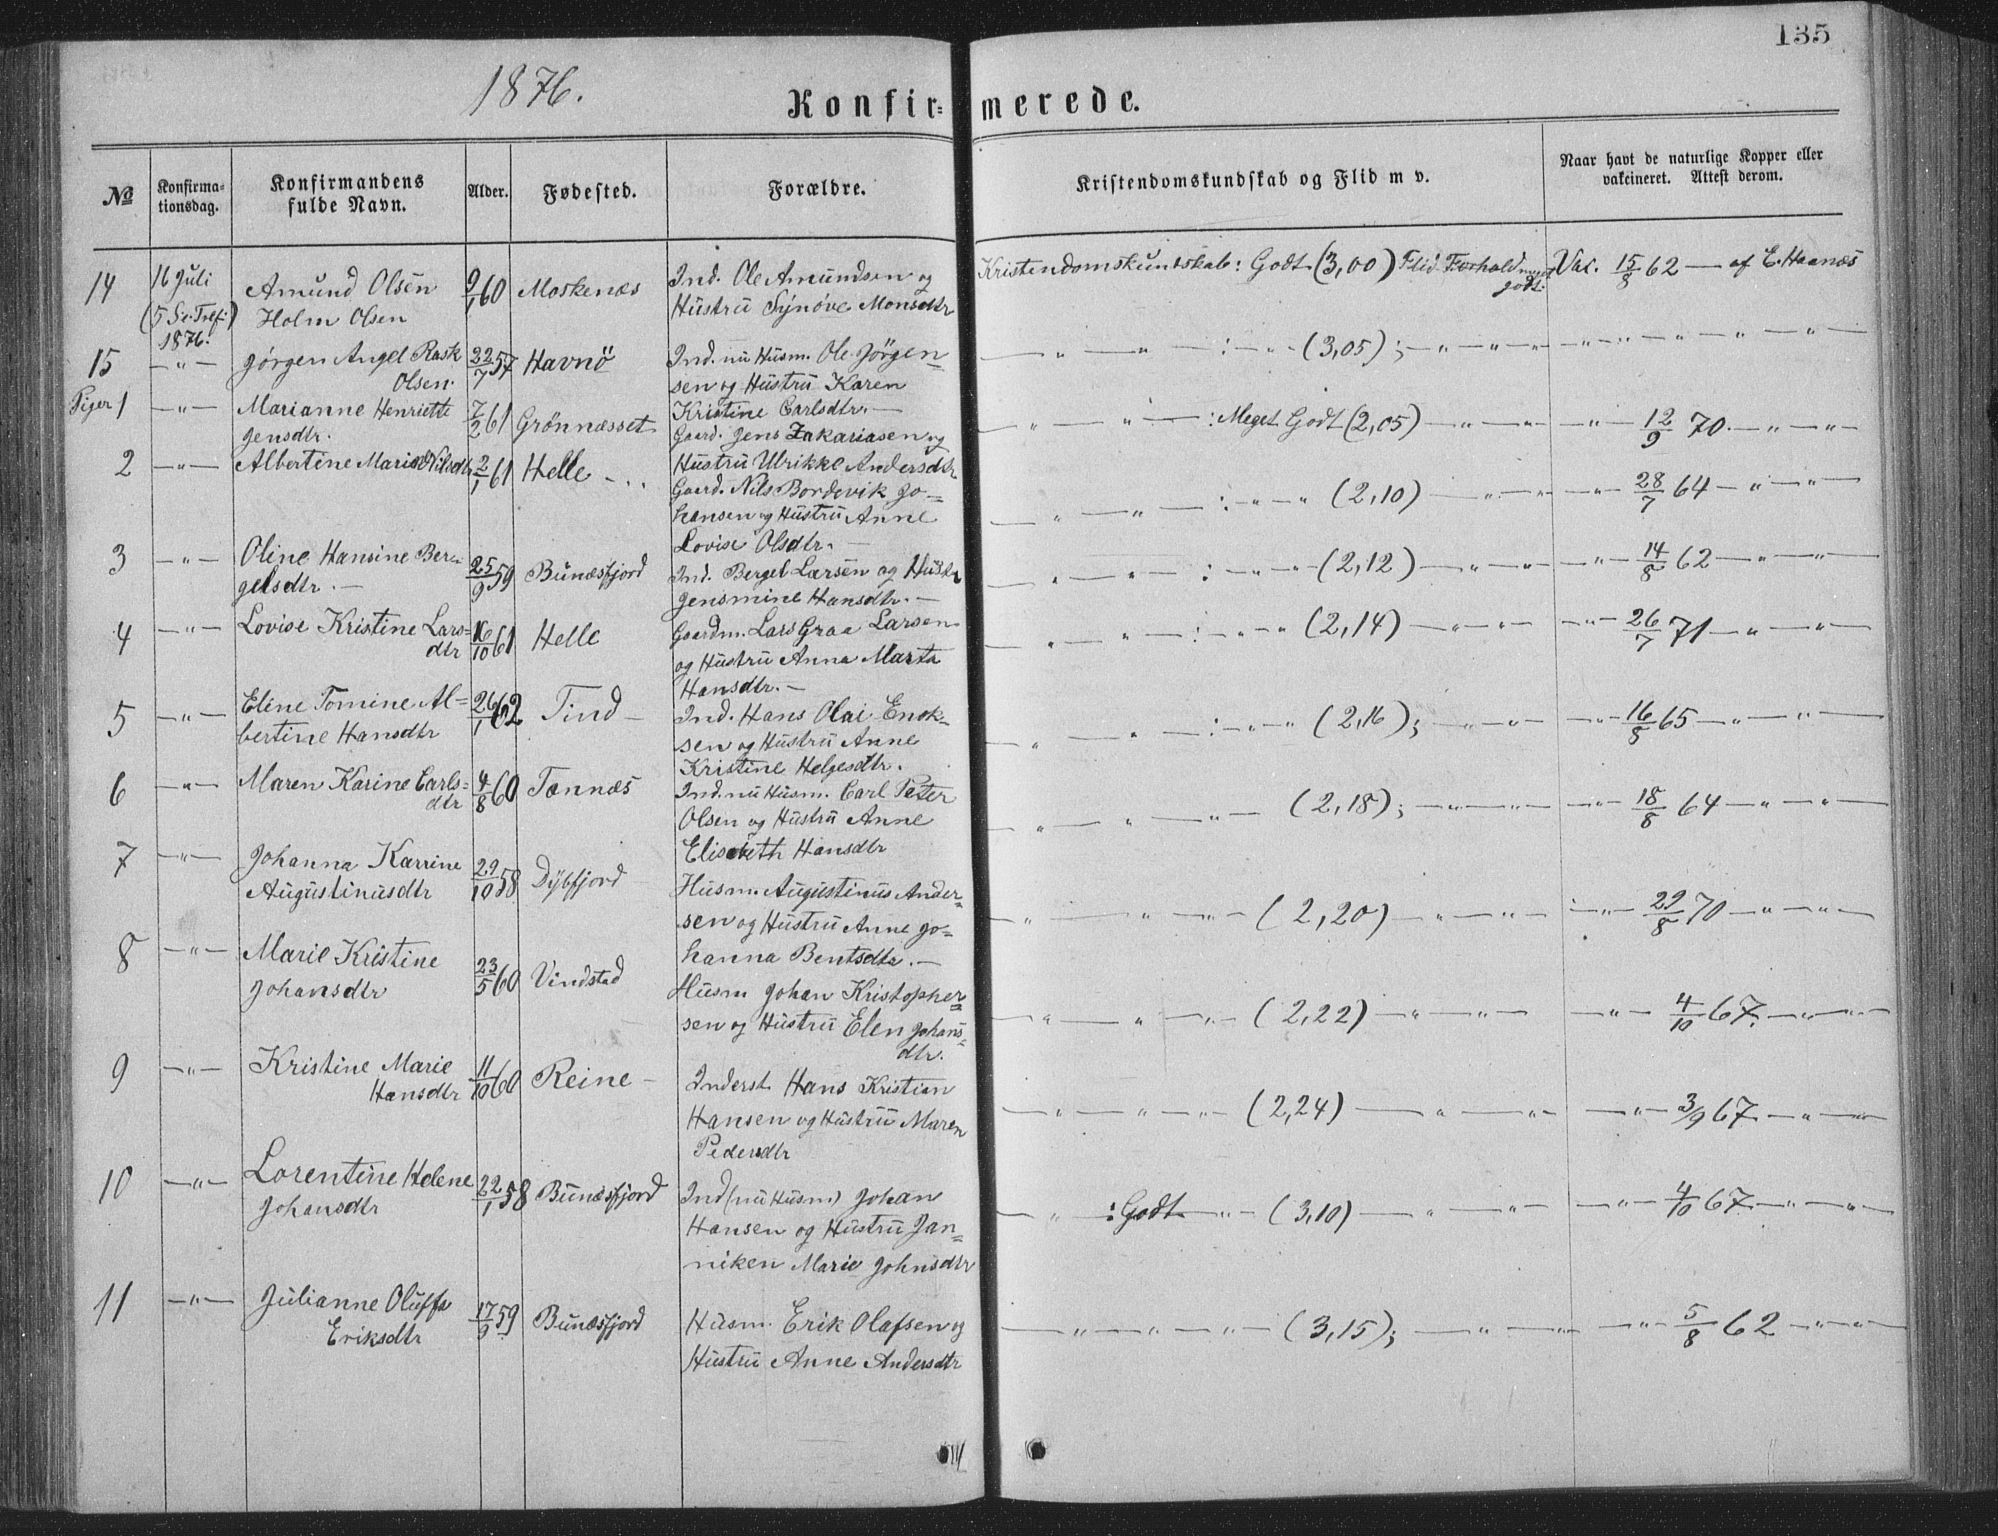 135
1876.
Konfirmerede.
No
Konfirma-
tionsdag.
Konfirmandens
fulde Navn.
Alder.
Fødested.
Forældre.
Kristendomskundskab og Flid m v.
Naar havt de naturlige Kopper eller
vakcineret. Attest derom.
14 16 Juli Amund Olsen 9/1 60 Moskenæs Ind. Ole Amundsen og Kristendomskundskab: Godt (3,00) Flid Forhold meget godt. Vac. 15/8 62 — af E. Haanæs
(5 S.e. Tref.) Holm Olsen Hustru Synøve Monsdtr
1876.
15 —"— Jørgen Angel Rask 22/7 57 Havnö Ind. nu Husm. Ole Jørgen- —"—"—:—"—(3,05);—"—"—"
Olsen. sen og Hustru Karen
Kristine Carlsdtr.—
Piger 1 —"— Marianne Henriette 7/2 61 Grønnæsset Gaard. Jens Zakariasen og —"—"—: Meget Godt (2,05) —"—"— —"— 12/9 70.—"—"—
Jensdtr. Hustru Ulrikke Andersdtr
2 —"— Albertine Marie Nilsdtr 2/1 61 Helle - .. Gaard. Nils Bordevik Jo- —"—"—:—"—"(2,10)—"—"— —"— 28/7 64—"—"—
hansen og Hustru Anne
Lovise Olsdtr.—
3 —"— Oline Hansine Ber- 25/9 59 Bunæsfjord Ind. Bergel Larsen og Hustr —"—"—:—"—"(2,12)—"—"— —"— 14/8 62—"—"—
gelsdtr.— Jensmine Hansdtr.—
4 —"— Lovise Kristine Lars- 16/10 61 Helle Gaardm. Lars Graa Larsen —"—"—:—"—"(2,14)—"—"— —"— 26/7 71—"—"—
dtr og Hustru Anna Marta
Hansdtr.—
5 —"— Eline Tomine Al- 26/1 62 Tind — Ind. Hans Olai Enok- —"—"—:—"—"(2,16);—"—"— —"— 16/8 65—"—"—
bertine Hansdtr sen og Hustru Anne
Kristine Helgesdtr.
6 —"— Maren Karine Carls- 4/8 60 Tennæs Ind. nu Husm. Carl Peter —"—"—"—(2,18);—"—"— —"— 18/8 64—"—"—
dtr Olsen og Hustru Anne
Elisabeth Hansdtr
7 —"— Johanna Karrine 29/10 58 Dybfjord Husm. Augustinus Ander- —"—"—"—(2,20)—"—"— —"— 29/8 70—"—"—
Augustinusdtr sen og Hustru Anne Jo-
hanna Bentsdtr.—
8 —"— Marie Kristine 23/5 60 Vindstad Husm Johan Kristopher- —"—"—"—(2,22)—"—"— —"— 4/10 67.—"—"—
Johansdtr sen og Hustru Elen Johans-
dtr.
9 —"— Kristine Marie 11/10 60 Reine — Inderst Hans Kristian —"—"—"—(2,24)—"—"— —"— 3/9 67—"—"—
Hansdtr Hansen og Hustru Maren
Pedersdtr
10 —"— Lorentine Helene 22/1 58 Bunæsfjord Ind (nu Husm) Johan —"—: Godt —"—(3,10)—"—"— —"— 4/10 67.—"—"—
Johansdtr Hansen og Hustru Jan-
niken Marie Johnsdtr
11 —"— Julianne Oluffa 17/9 59 Bunæsfjord Husm. Erik Olafsen og —"—"—"—(3,15);—"—"— —"— 5/8 62—"—"—
Eriksdtr Hustru Anne Andersdtr